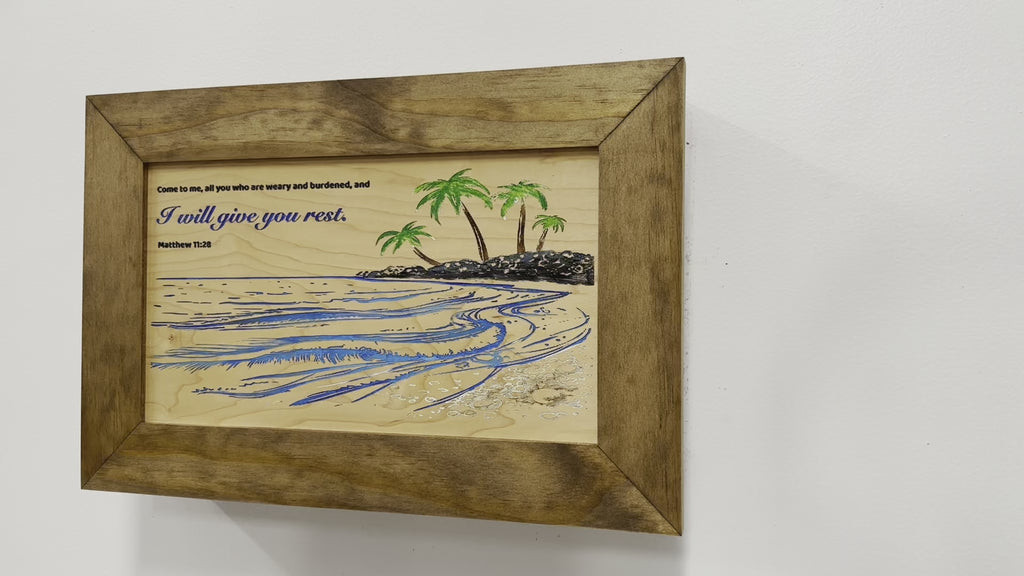 Come to me, all you who are weary and burdened, and
I will give you rest.
Matthew 11:28